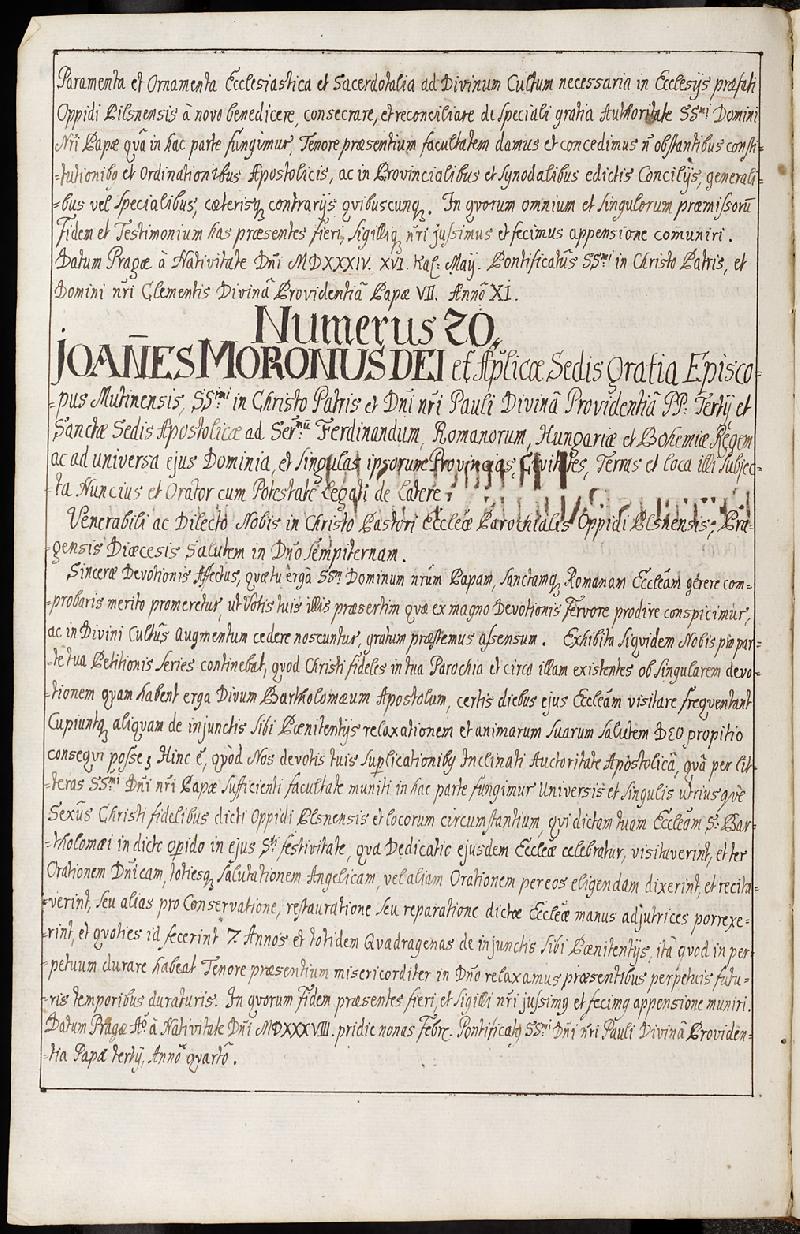 Paramenta et Ornamenta Ecclesiastica et Sacerdotalia ad Divinum Cultum necessaria in Ecclesijs præfati
Oppidi Pilsnensis à novo benedicere, consecrare, et reconciliare de speciali gratia Authoritate SSmi Domini
Nri Papæ quâ in hac parte fungimur, Tenore præsentium facultatem damus et concedimus ñ obstantibus consti-
-tutionibꝯ et Ordinationibus Apostolicis, ac in Provincialibus et Synodalibus edictis Concilijs, generali-
-bus vel specialibus, cæterisqȝ contrarijs quibuscunqȝ. In quorum omnium et singulorum præmissorũ
Fidem et Testimonium has præsentes fieri, sigilliqȝ nri jussimus et fecimus appensione comuniri.
Datum Pragæ à Nativitate Dñi MDXXXIV. XVI. Kal. Maij. Pontificatûs SSmi in Christo Patris, et
Domini nri Clementis Divinâ Providentiâ Papæ VII. Annô XI.
Numerus 20.
JOAÑES MORONUS DEI et Aplicæ Sedis Gratia Episco-
-pus Mutinensis, SSmi in Christo Patris et Dñi nri Pauli Divinâ Providentiâ PP. Tertij et
Sanctæ Sedis Apostolicæ ad Sermũ Ferdinandum, Romanorum, Hungariæ et Bohemiæ Regem
ac ad universa ejus Dominia, et singulas ipsorum Provincias, Civitates, Terras et loca illi subjec-
-ta Nuncius et Orator cum Potestate Legati de Latere.
Venerabili ac Dilecto Nobis in Christo Pastori Ecclæ Parochialis Oppidi Plsnensis, Pra-
gensis Diæcesis Salutem in Dño sempiternam.
Sinceræ Devotionis Afectus, quæ tu ergà SSm Dominum nrum Papam, Sanctamqȝ Romanam Eccleãm gerere com-
-probaris meritò promeretur, ut Votis tuis illis præsertim quæ ex magno Devotionis Fervore prodire conspicimur,
ac in Divini Cultûs augmentum cedere noscuntur, gratum præstemus assensum. Exhibita siquidem Nobis pro par-
-te tua Petitionis series continebat, quod Christi fideles in tua Parochia et circa illam existentes ob singularem devo-
-tionem quam habent erga Divum Bartholomæum Apostolum, certis diebus ejus Eccleãm visitare frequentant
Cupiuntqȝ aliquam de injunctis sibi Pœnitentijs relaxationem et animarum suarum salutem DEO propitio
consequi posse; Hinc ẽ, quòd Nos devotis tuis suplicationibꝯ Inclinati Auctoritate Apostolicâ, quâ per lit-
-teras SSmi Dñi nri Papæ sufficienti facultate muniti in hac parte fungimur Universis et singulis utriusque
Sexûs Christi fidelibus dicti Oppidi Plsnensis et locorum circumstantium, qui dictam tuam Eccleãm S. Bar-
-tholomæi in dicto opido in ejus Sti festivitate, quâ Dedicatio ejusdem Ecclæ celebratur, visitaverint, et ter
Orationem Dñicam, totiesqȝ salutationem Angelicam, vel aliam Orationem per eos eligendam dixerint, et recita-
-verint, seu alias pro Conservatione, restauratione seu reparatione dictæ Ecclæ manus adjutrices porrexe-
-rint, et quoties id fecerint 7. Annos et totidem Quadragenas de injunctis sibi Pœnitentijs, ità quod in per-
-petuum durare habeat Tenore præsentium misericorditer in Dño relaxamus præsentibus perpetuis futu-
-ris temporibus duraturis. In quorum Fidem præsentes fieri, et sigilli nri jussimꝯ et fecimꝯ appensione muniri.
Datum Pragæ Aõ à Nativitate Dñi MDXXXVIII. pridie nonas Febr. Pontificatꝯ SSmi Dñi nri Pauli Divinâ Providen-
-tia Papæ tertij, Annô quartô.